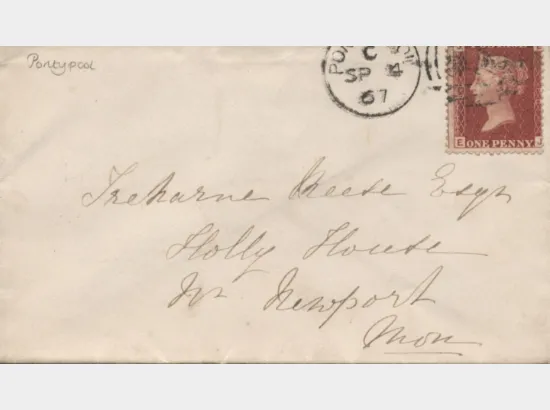 Pontypool
C
SP 4
67
E
ONE PENNY
Treharne Reese Esqr
Holly House
Nr Newport
Mon